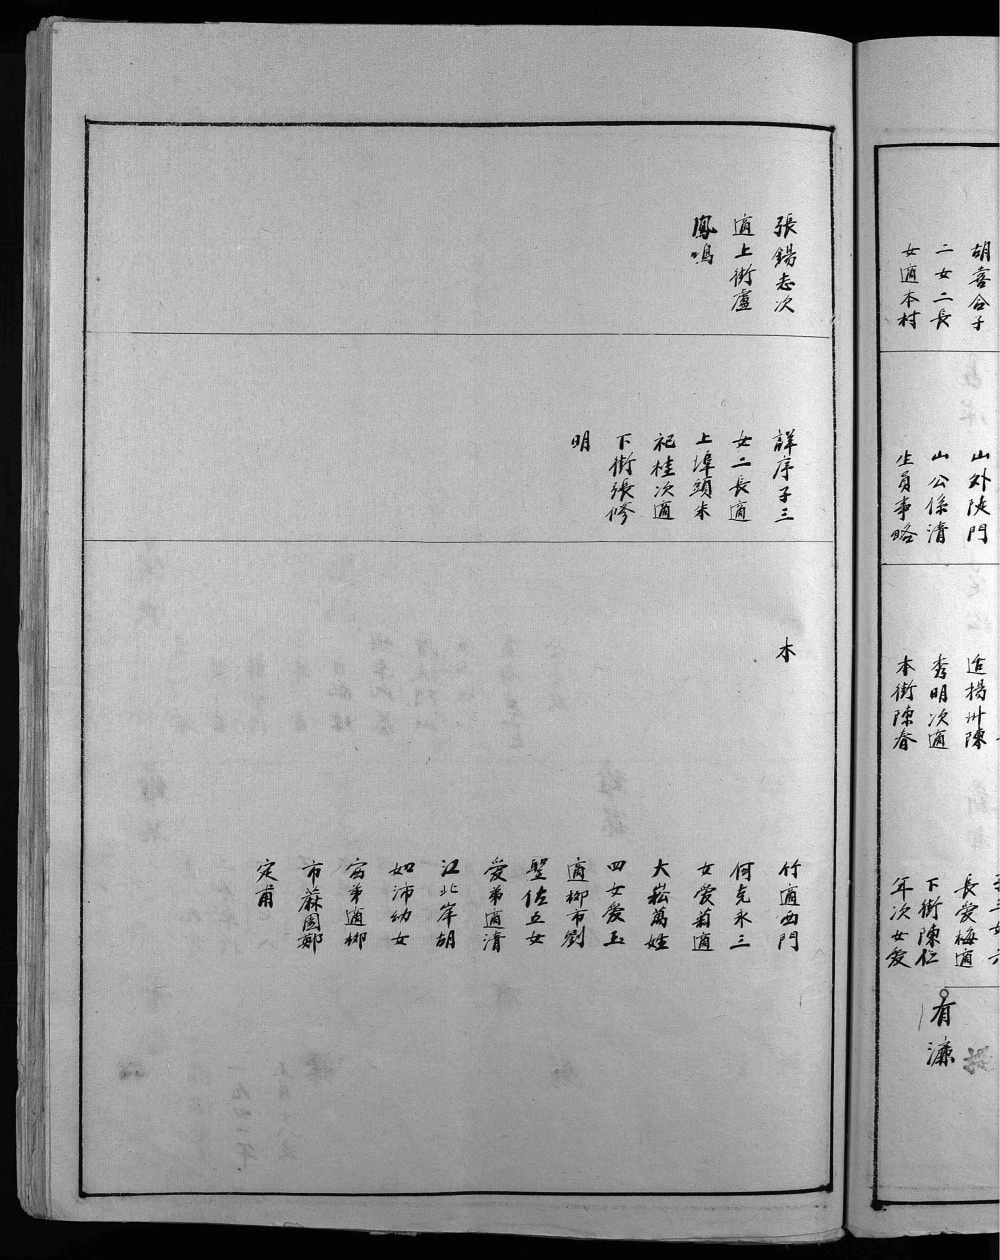 胡喜合子
二女二長
女適本村
山外陡門
山公係清
生員事略
適揚州陳
秀明次適
本街陳春
長愛梅適
下街陳仁
年次女愛
有濂
張錫志次
適上街盧
鳳鳴
詳序子三
女二長適
上埠頭朱
祀桂次適
下街張修
明
本
竹適西門
何克永三
女愛菊適
大崧萬姓
四女愛玉
適柳市劉
堅佐五女
愛弟適清
江北岸胡
如沛幼女
安弟適柳
市蔴園鄭
定甫